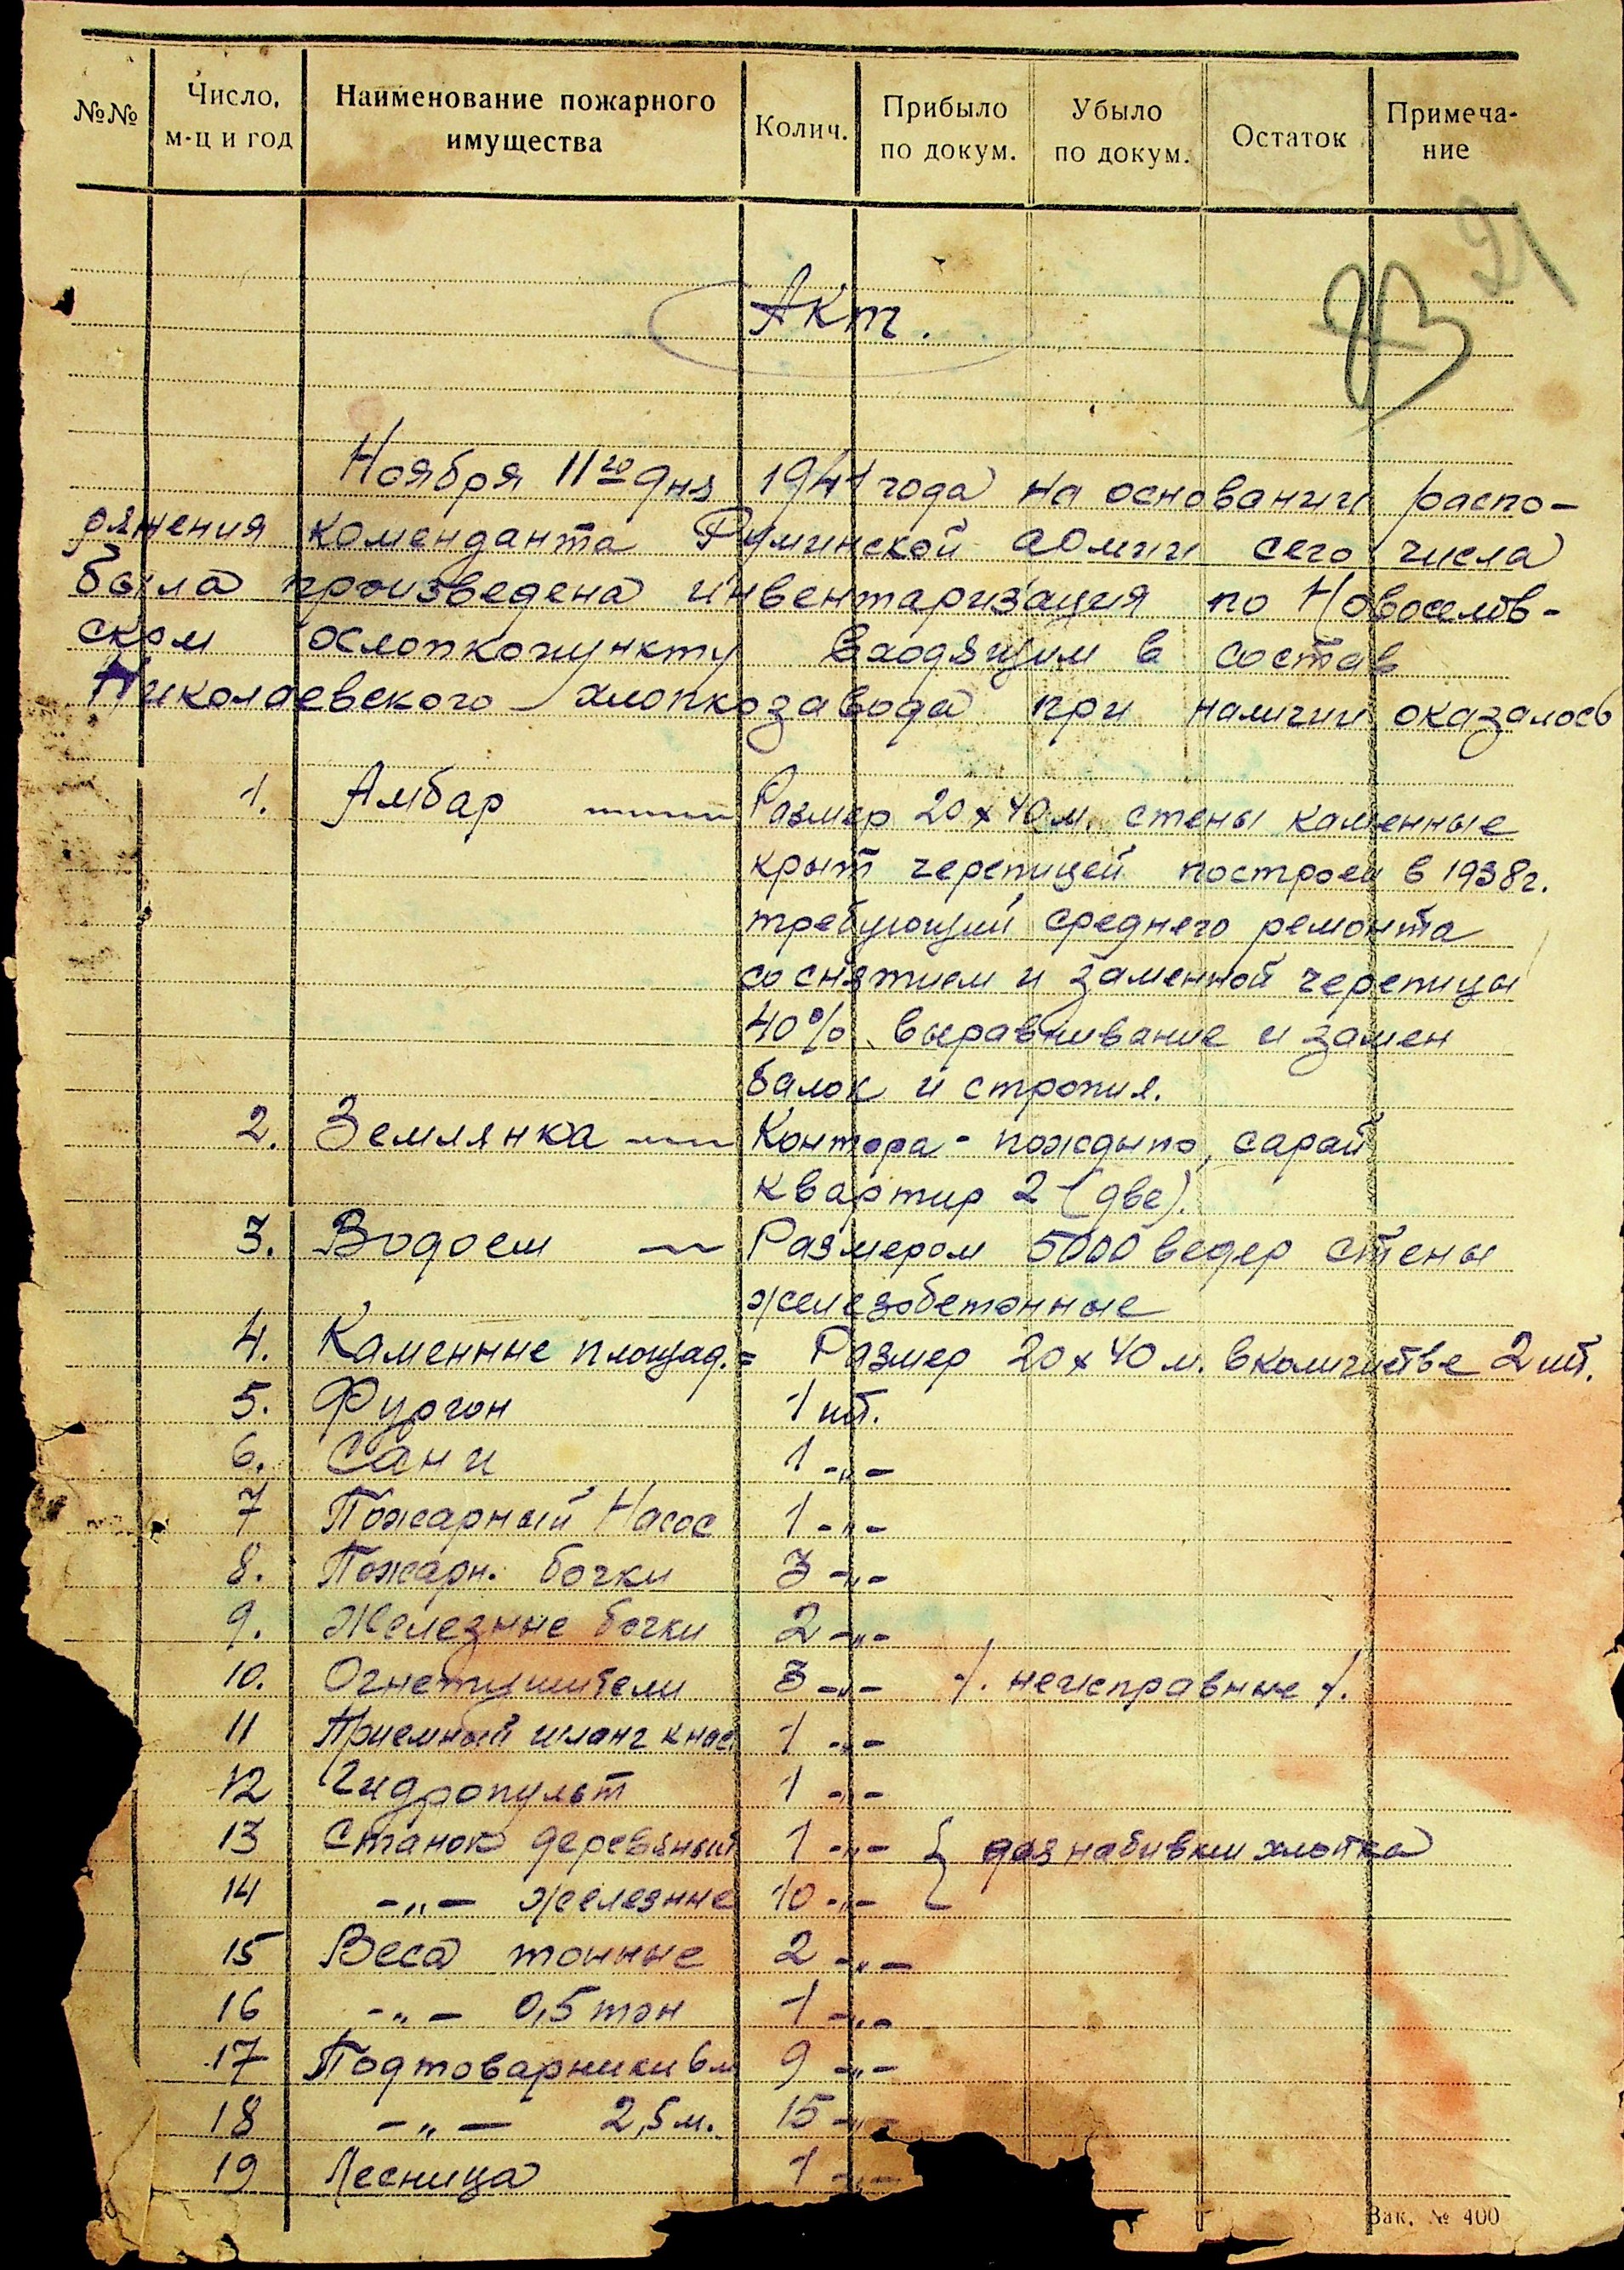 №№ Число, м-ц и год Наименование пожарного имущества Колич. Прибыло по докум. Убыло по докум. Остаток Примеча-ние
21
Акт.
Ноября 11го дня 1941 года на основании распо-
ряжения коменданта Румынской сего числа
была произведена инвентаризация по Новоселов-
ском хлопкопункту входящим в состав
Николаевского хлопкозавода при наличии оказалось
1. Амбар Размер 20 х 40 м. стены каменные
крыт черепицей построен в 1938 г.
требующий среднего ремонта
со снятием и заменной черепицы
40% выравнивание и замен
балок и стропил.
2. Землянка Контора - сарай
квартир 2 (две).
3. Водоем Размером 5000 ведер стены
железобетонные
4. Каменные площад. = Размер 20 х 40 м. в количистве 2 шт.
5. Фургон 1 шт.
6. Сани 1 -„-
7 Пожарный Насос 1 -„-
8. Пожарн. бочки 3 -„-
9. Железные бочки 2 -„-
10. Огнетушители 3 -„- /. неисправные /.
11 Приемный шланг к нас 1 -„-
12 Гидропульт 1 -„-
13 Станок деревяный 1 -„- { для набивки хлопка
14 -„- железные 10 -„-
15 Веса тонные 2 -„-
16 -„- 0,5 тон 1 -„-
17 Подтоварники 6 м 9 -„-
18 -„- 2,5 м. 15 -„-
19 Лесница 1 -„-
Зак. № 400